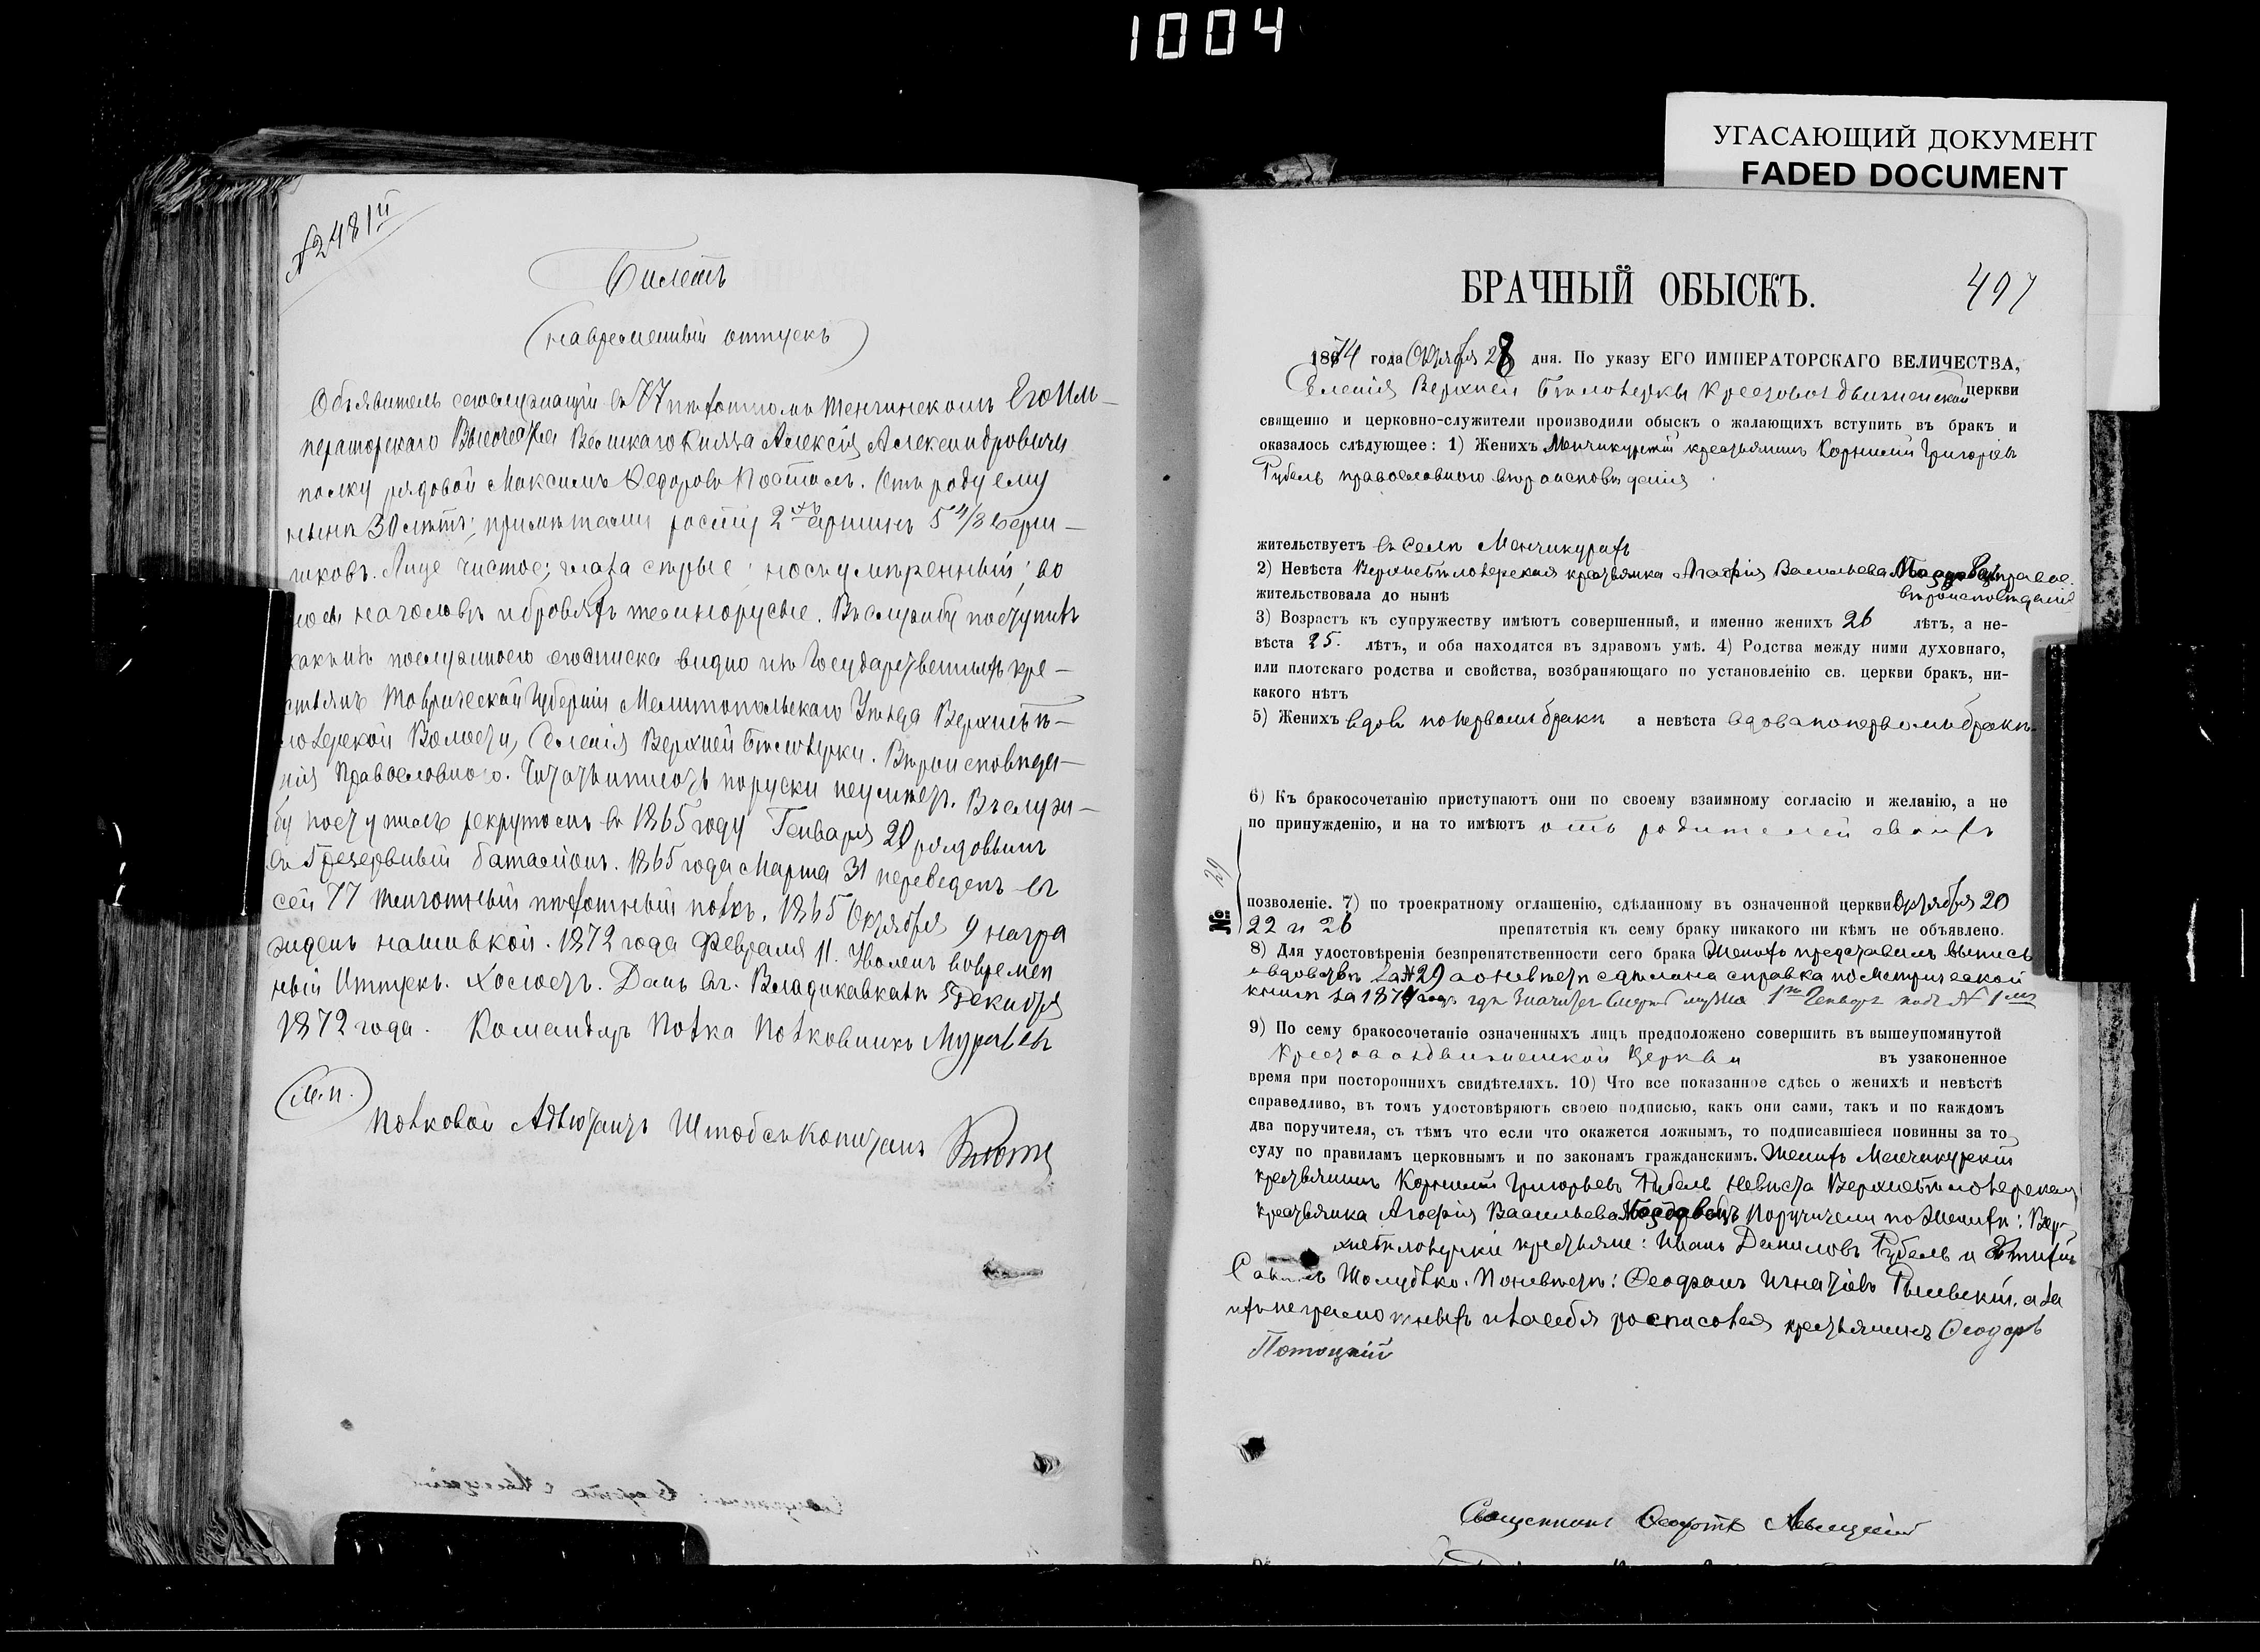 1004
УГАСАЮЩИЙ ДОКУМЕНТ
FADED DOCUMENT
№ 2481й
Билетъ
(на временный отпускъ)
Объявитель сего служащій въ 77 пѣхотномъ Тенгинскомъ Его Им-
ператорскаго Высочества Великаго Князя Алексія Александровича
полку рядовой Максимъ Ѳедоровъ. Отъ роду ему
нынѣ 30 лѣтъ; примѣтами ростъ 2 аршинъ 5 4/8 верш-
ковъ. Лице чистое; глаза сѣрые; носъ умѣренный; во
лосы на головѣ и бровяхъ темнорусые. Въ службу поступилъ
какъ изъ послужнаго списка видно изъ Государственныхъ кре-
стьянъ Таврической Губерніи Мелитопольскаго Уѣзда Верхнебѣ-
лозерской Волости, Селенія Верхней Бѣлозерки. Вѣроисповѣда-
нія Православнаго. Читать и писать по руски неумѣетъ. Въ служ-
бу поступилъ рекрутомъ въ 1865 году Генваря 20 рядовымъ
въ резервный баталіонъ. 1865 года Марта 31 переведенъ въ
сей 77 пѣхотный полкъ. 1865 Октября 9 награ
жденъ нашивкой. 1872 года Февраля 11. Уволенъ во времен
ный Отпускъ. Холостъ. Данъ въ г. Владикавказѣ 5 Декабря
1872 года. Командиръ Полка Полковникъ Муравьевъ
(М.П.)
Полковой Адъютантъ Штабсъ Капитанъ
БРАЧНЫЙ ОБЫСКЪ.
497
1874 года Октября 28 дня. По указу ЕГО ИМПЕРАТОРСКАГО ВЕЛИЧЕСТВА,
Селенія Верхней Бѣлозерки Крестовоздвиженской церкви
священно и церковно-служители производили обыскъ о жалающихъ вступить въ бракъ и
оказалось слѣдующее: 1) Женихъ Менчикурскій крестьянинъ Корнилій Григорьевъ
Рубель православнаго вѣроисповѣданія
жительствуетъ въ селѣ Менчикурахъ
2) Невѣста Верхнебѣлозерская крестьянка Агафія Васильева правос.
жительствовала до нынѣ вѣроисповѣданія
3) Возрастъ къ супружеству имѣютъ совершенный, и именно женихъ 26 лѣтъ, а не-
вѣста 25. лѣтъ, и оба находятся въ здравомъ умѣ. 4) Родства между ними духовнаго,
или плотскаго родства и свойства, возбраняющаго по установленію св. церкви бракъ, ни-
какого нѣтъ
5) Женихъ вдовъ по первомъ бракѣ а невѣста вдова по первомъ бракѣ.
6) Къ бракосочетанію приступаютъ они по своему взаимному согласію и желанію, а не
по принужденію, и на то имѣютъ отъ родителей своихъ
№ 29
позволеніе. 7) по троекратному оглашенію, сдѣланному въ означенной церкви Октября 20
22 и 26 препятствія къ сему браку никакого ни кѣмъ не объявлено.
8) Для удостовѣренія безпрепятственности сего брака Женихъ представилъ выпись
о вдовствѣ за № 29 а о невѣстѣ сдѣлана справка по метрической
книгѣ за 1874 годъ гдѣ значится смерть мужа 1го Генваря подъ № 1мъ
9) По сему бракосочетаніе означенныхъ лицъ предположено совершить въ вышеупомянутой
Крестовоздвиженской Церкви въ узаконенное
время при постороннихъ свидѣтеляхъ. 10) Что все показанное сдѣсь о женихѣ и невѣстѣ
справедливо, въ томъ удостовѣряютъ своею подписью, какъ они сами, такъ и по каждомъ
два поручителя, съ тѣмъ что если что окажется ложнымъ, то подписавшіеся повинны за то
суду по правиламъ церковнымъ и по законамъ гражданскимъ. Женихъ Менчикурскій
крестьянинъ Корнилій Григорьевъ Рубель Невѣста Верхнебѣлозерская
крестьянка Агафія Васильева Поручители по Женихѣ: Вер-
хнебѣлозерскіе крестьяне: Иванъ Даниловъ Рубель и
Шолудько. По невѣстѣ: Ѳеофанъ Игнатіевъ, а за
ихъ неграмотныхъ и за себя росписался крестьянинъ Ѳеодоръ
Потоцкій
Священникъ Левицкій